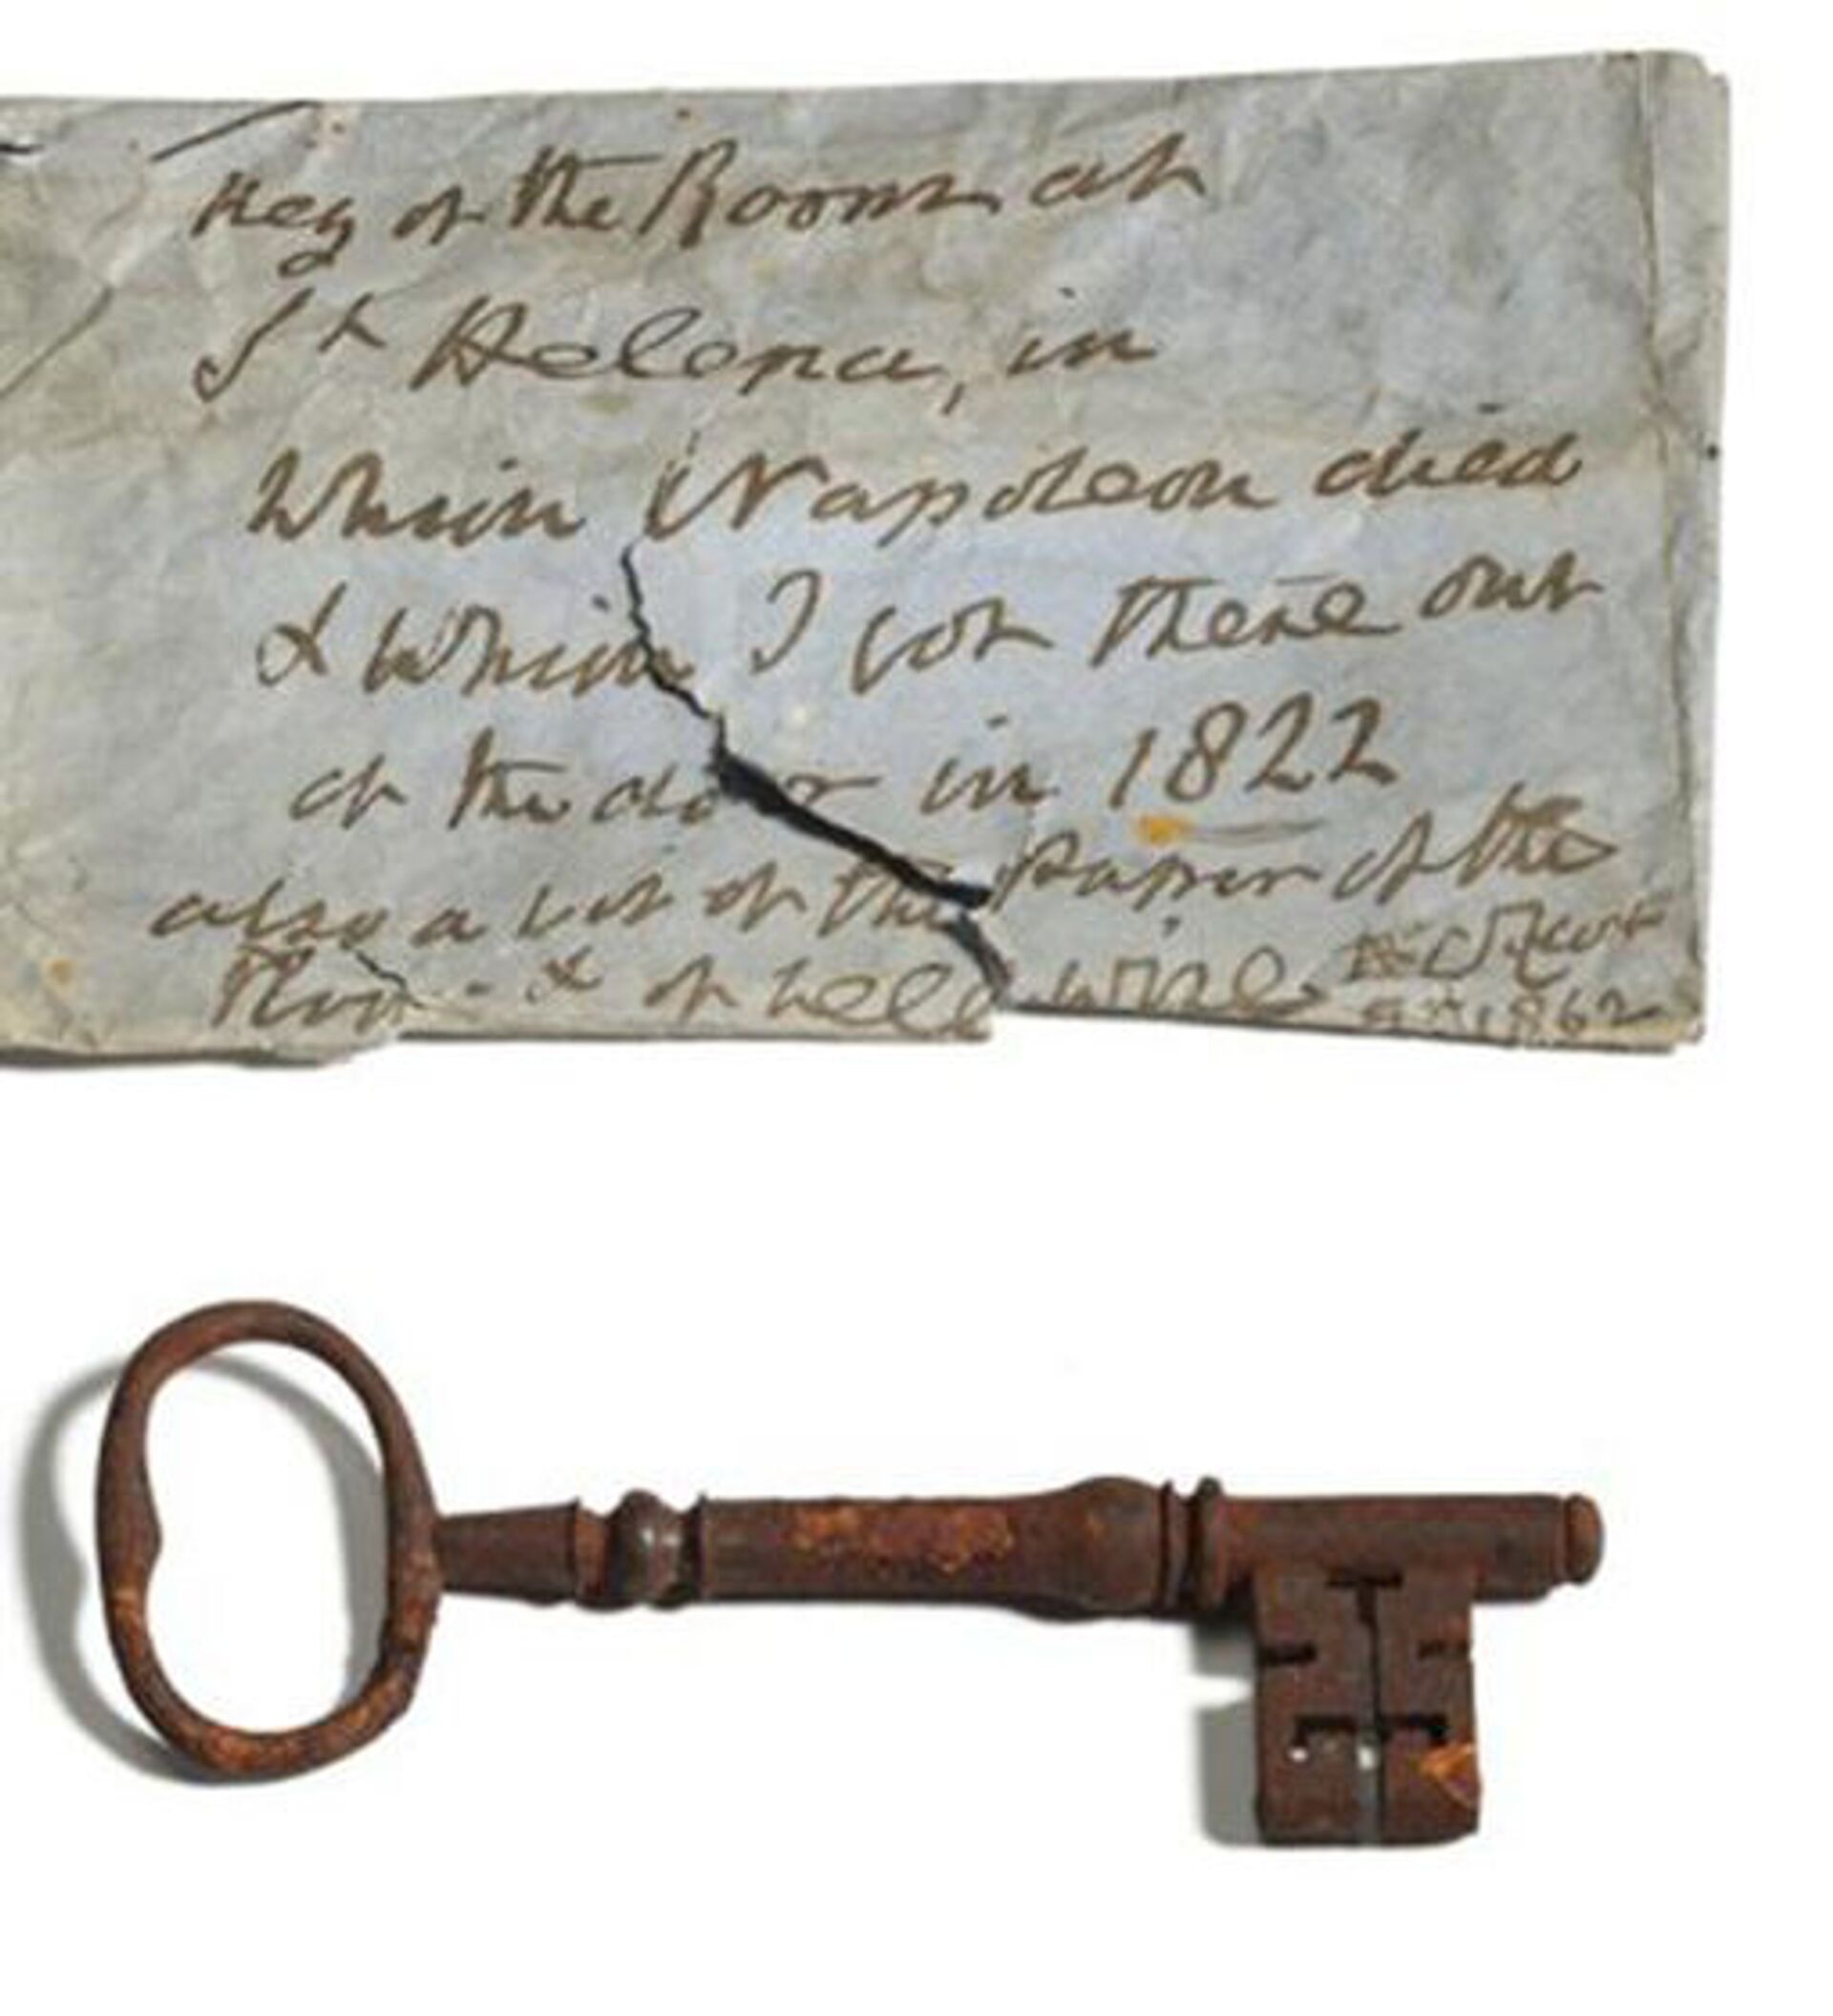 Key of the Room at
St Helena, in
Which Napoleon died
& Which I Got there out
of the door in 1822
also a bit of the Paper of the
Room & of bell wire
1862